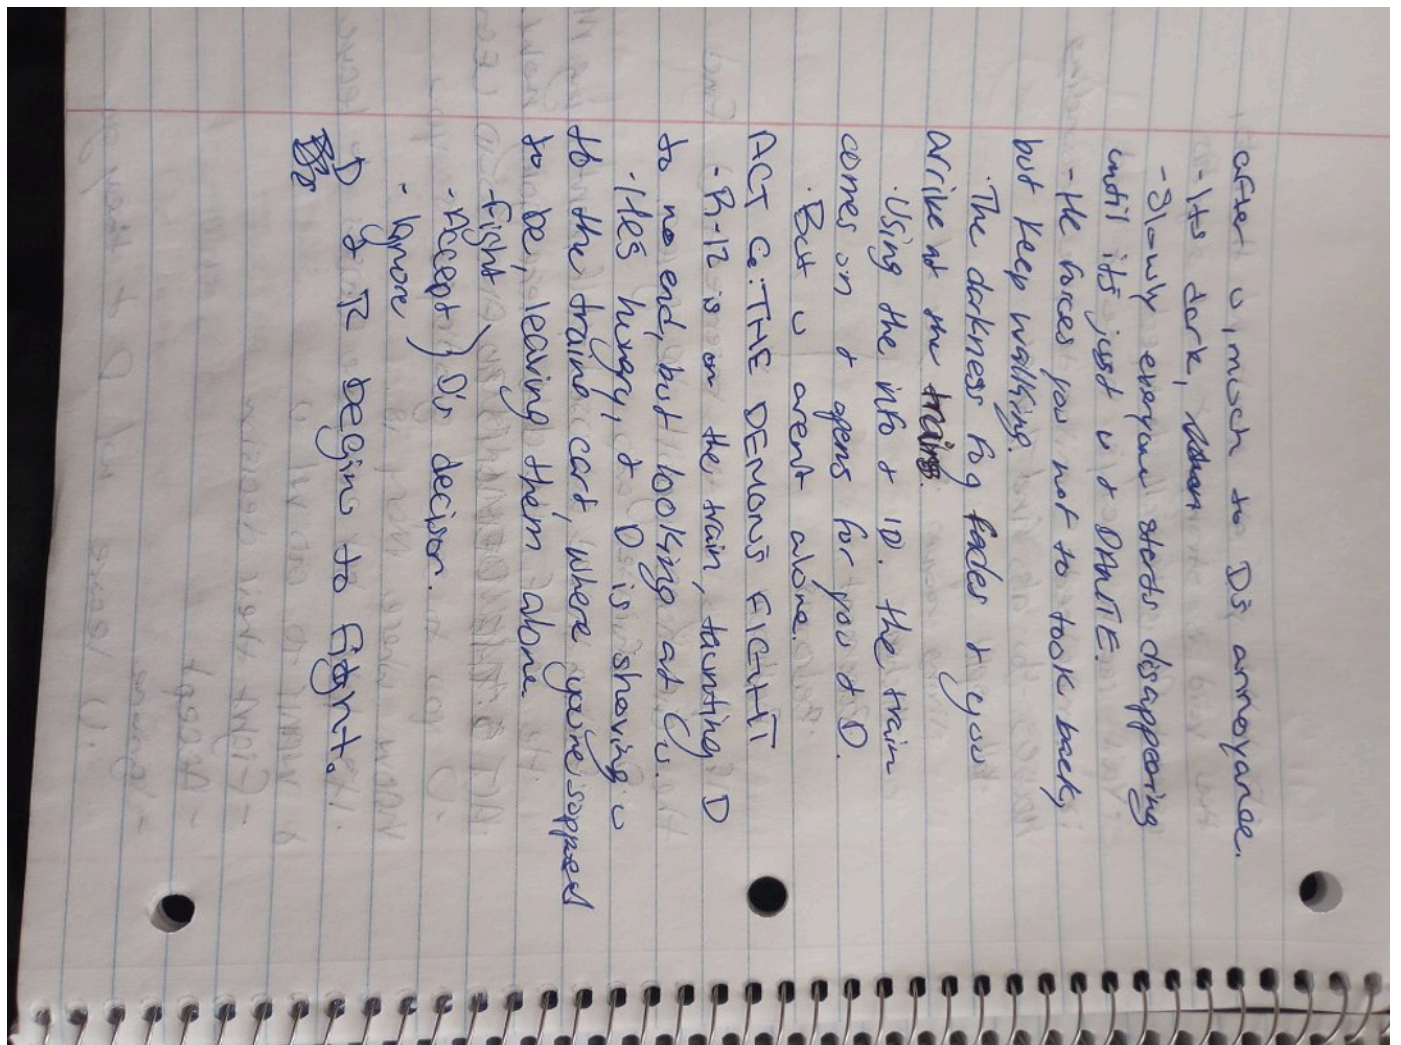 after u, much to D's annoyance.
- Its dark,
- Slowly everyone starts disappearing
until its just u & DANTE.
- He forces you not to look back,
but keep walking.
· The darkness fog fades & you
arrive at the trains.
· Using the info & ID. the train
comes on & opens for you & D.
· But u arent alone.
ACT 6: THE DEMONS FIGHT
- R-12 is on the train, taunting D
to no end, but looking at U.
· He's hungry, & D is shoving u
to the train cart, where you're sopposed
to be, leaving them alone.
- fight
- Accept } D's decision.
- Ignore
D & R begin to fight.